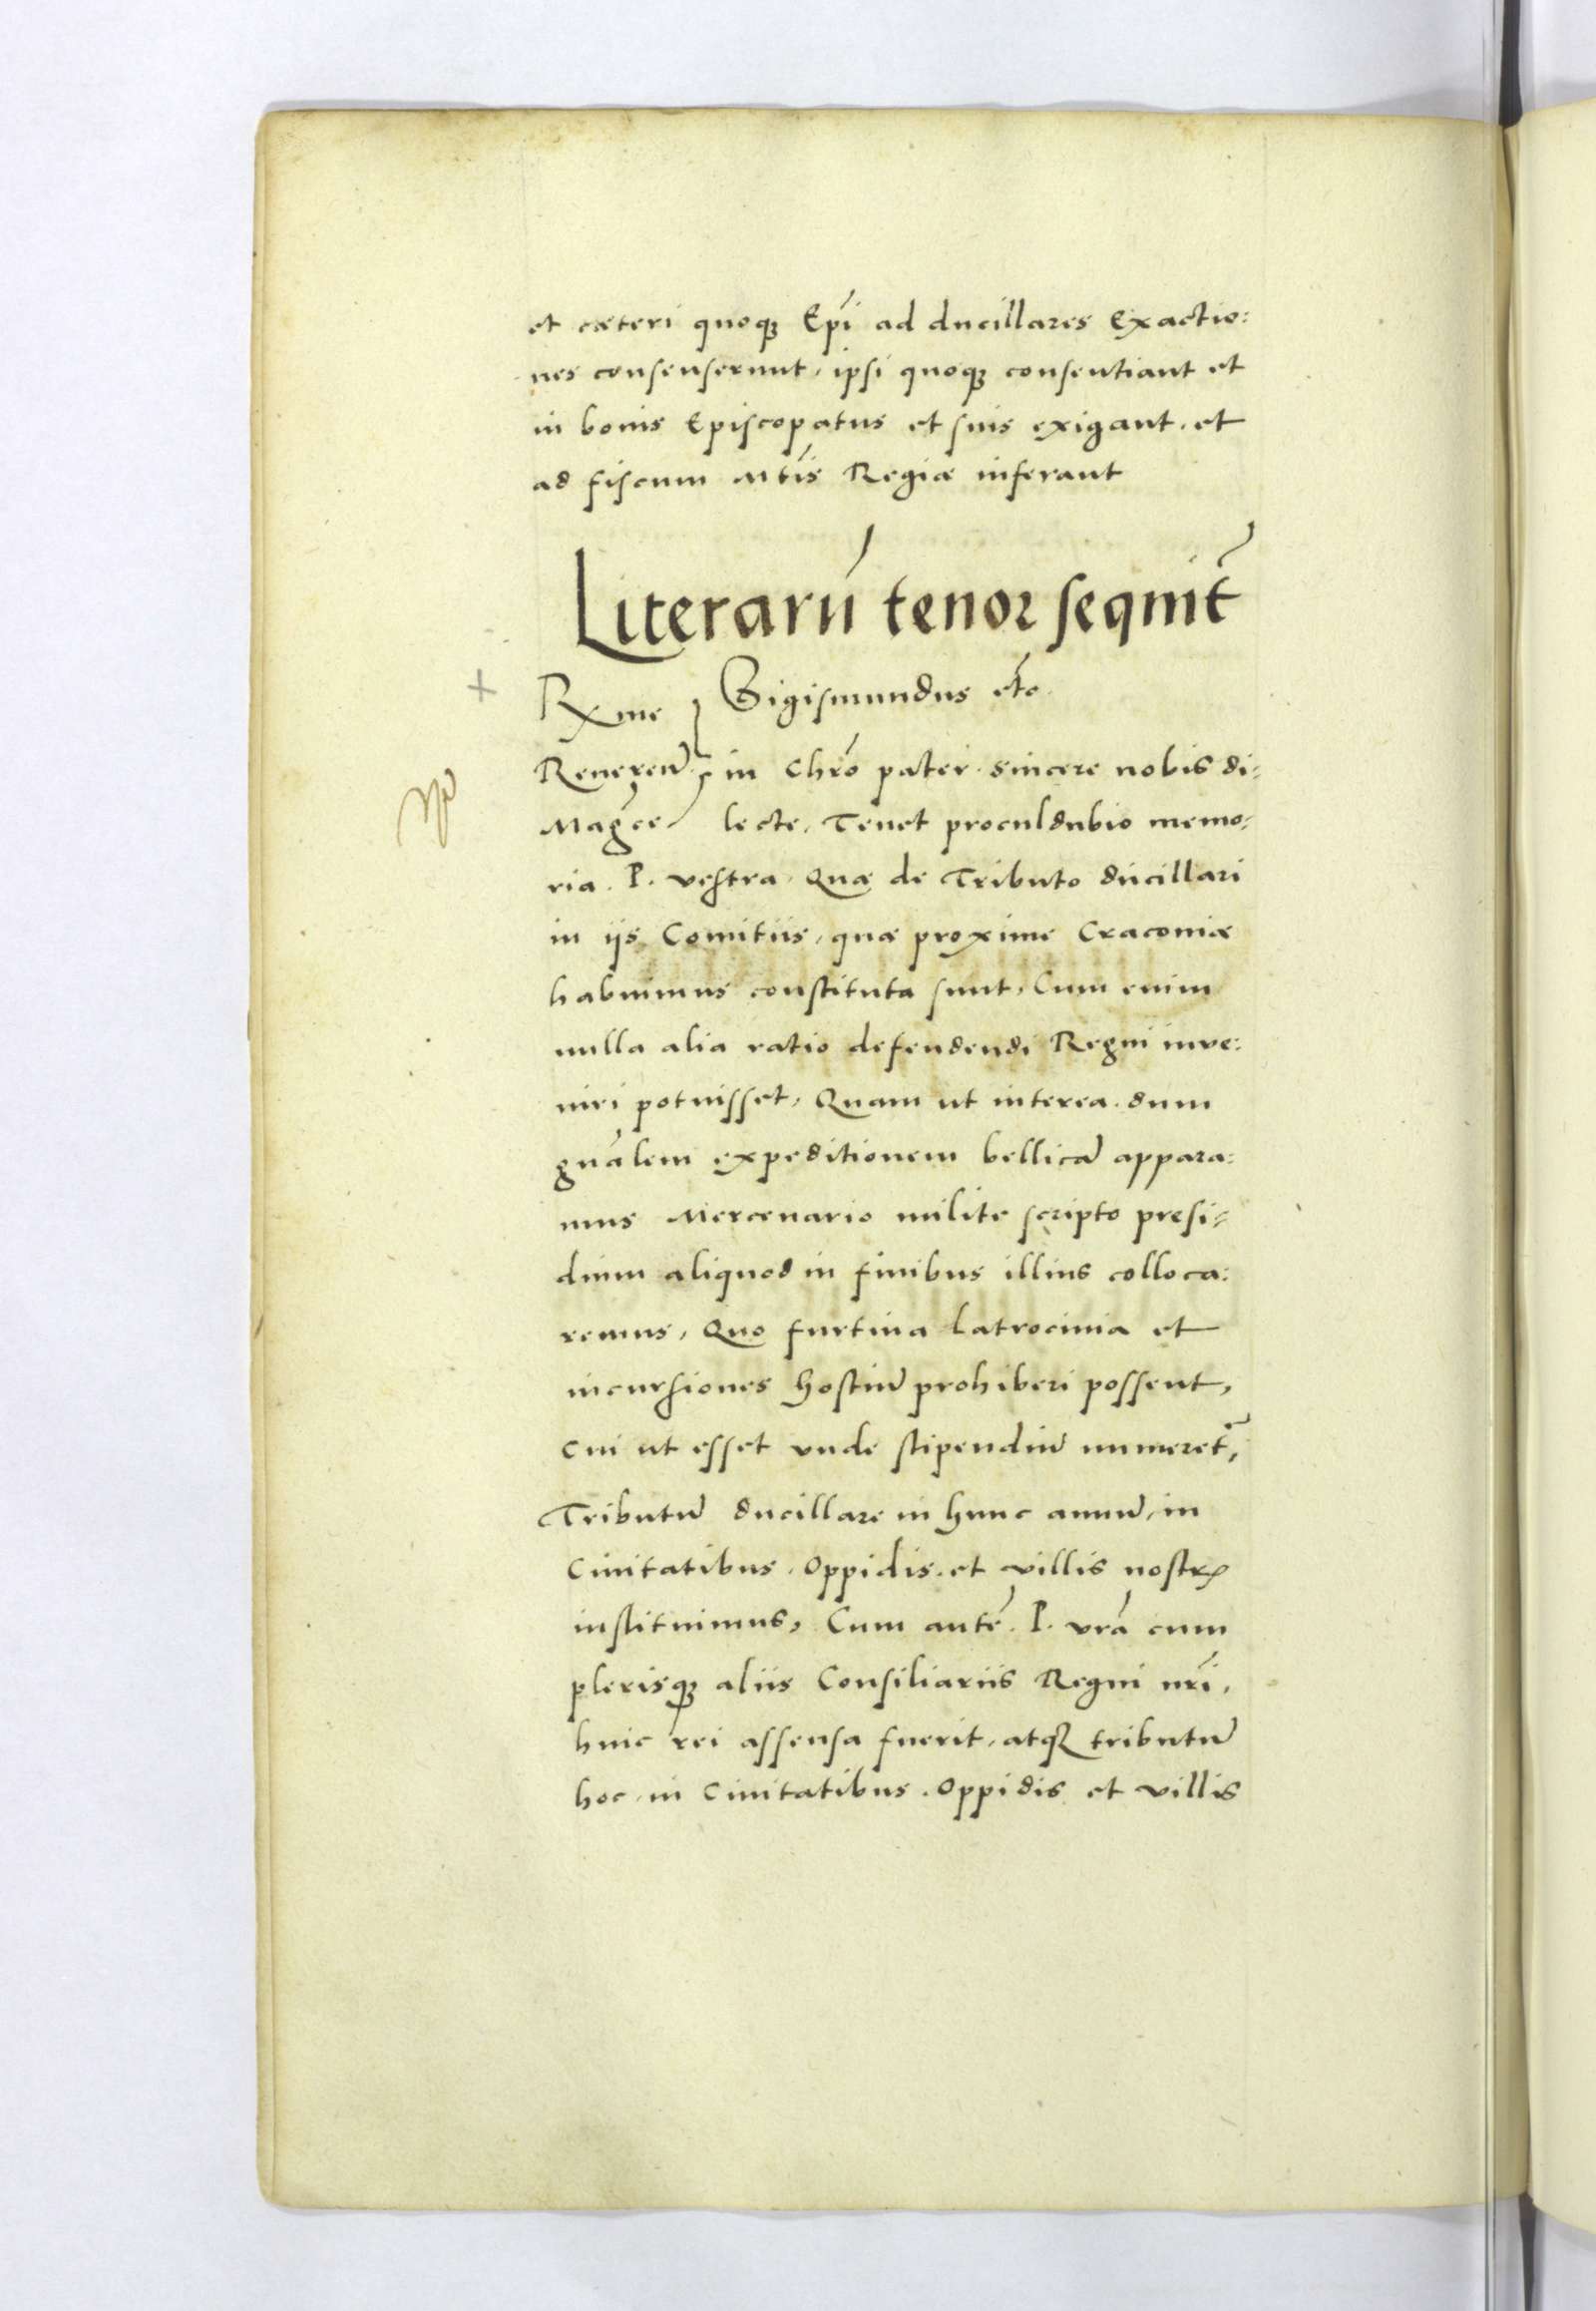 et cæteri quoqȝ Epĩ ad ducillares Exactio:
nes consenserunt, ipsi quoqȝ consentiant et
in bonis Episcopatus et suis exigant, et
ad fiscum Mtis̃ Regiæ inferant
Literarũ tenor sequit̃
Sigismundus etc̃
Rx̃me
Reueren̄ in Chrõ pater sincere nobis di:
Mag̃ce lecte, Tenet proculdubio memo:
ria P. vestra Quæ de Tributo ducillari
in ijs Comitiis, quæ proxime Cracouiæ
habuimus constituta sunt, Cum enim
nulla alia ratio defendendi Regni inve:
niri potuisset, Quam ut interea dum
gnãlem expeditionem bellicã appara:
mus Mercenario milite scripto presi:
dium aliquod in finibus illius colloca:
remus, Quo furtiua Latrocinia et
incursiones hostiũ prohiberi possent,
cui ut esset vnde stipendiũ numeret̃,
Tributũ ducillare in hunc annũ, in
Ciuitatibus, Oppidis, et villis nostrꝭ
instituimus, Cum autẽ P. vrã cum
plerisqȝ aliis Consiliariis Regni nrĩ,
huic rei assensa fuerit, atqȝ tributũ
hoc in Ciuitatibus, Oppidis et villis